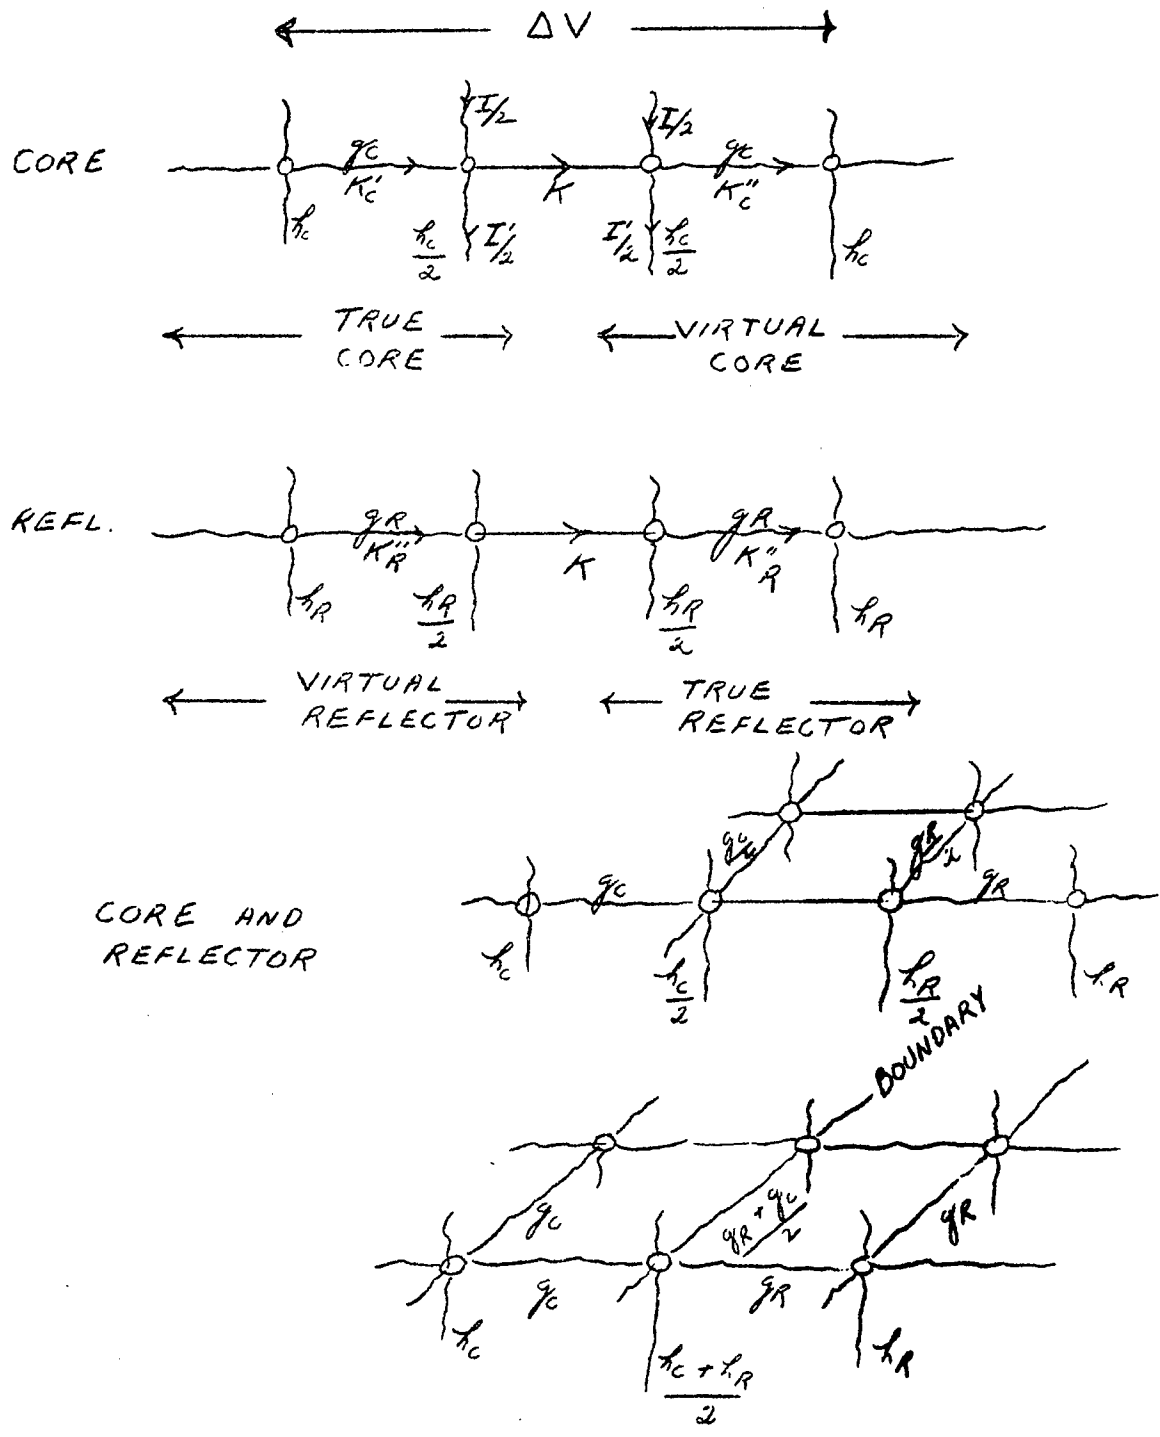 ΔV
I/2 I/2
CORE gc gc
K'c K K"c
hc hc/2 I'/2 I'/2 hc/2 hc
TRUE CORE
VIRTUAL CORE
REFL. gR gR
K'''R K K"R
hR hR/2 hR/2 hR
VIRTUAL REFLECTOR
TRUE REFLECTOR
gc/2 gR/2
CORE AND gc gR
REFLECTOR
hc hc/2 hR/2 hR
BOUNDARY
gc gR + gc/2 gR
gc gR
hc hc + hR/2 hR